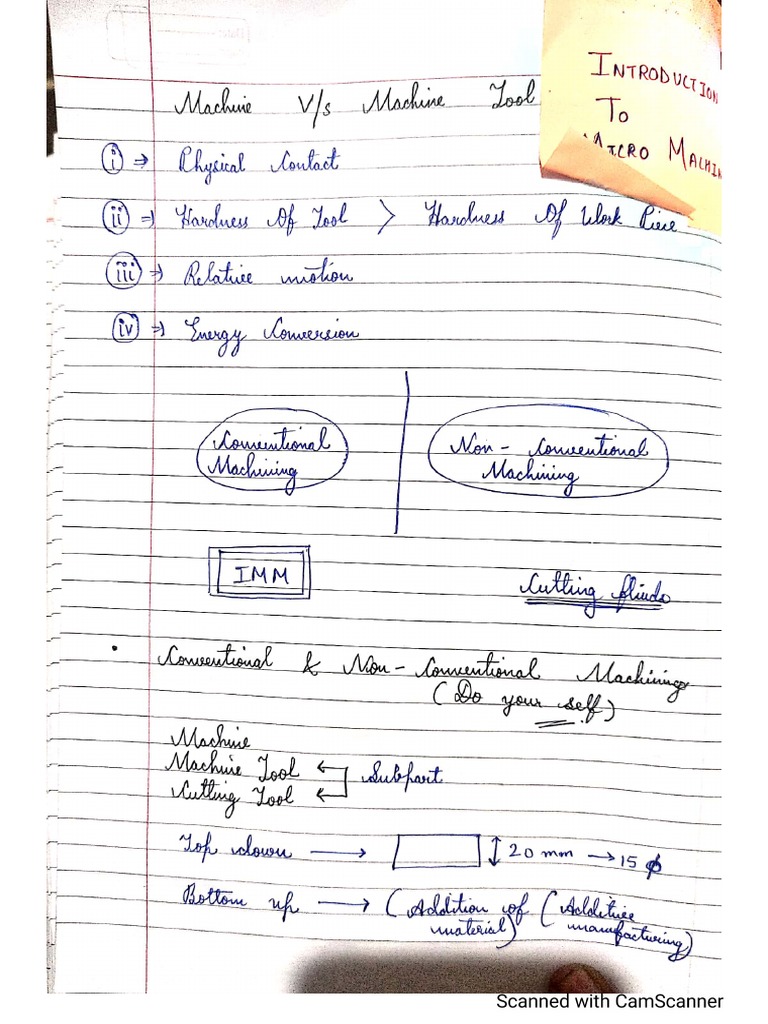 INTRODUCTION
TO
MICRO MACHIN
Machine V/s Machine Tool
(i) ⇒ Physical Contact
(ii) ⇒ Hardness Of Tool > Hardness Of Work Piece
(iii) ⇒ Relative motion
(iv) ⇒ Energy Conversion
Conventional
Machining
Non - Conventional
Machining
IMM
Cutting fluids
• Conventional & Non - Conventional Machining
(Do your self)
Machine
Machine Tool ← Subpart
Cutting Tool ←
Top down → ↕ 20 mm → 15 ϕ
Bottom up → (Addition of (Additive
material) manufacturing)
Scanned with CamScanner